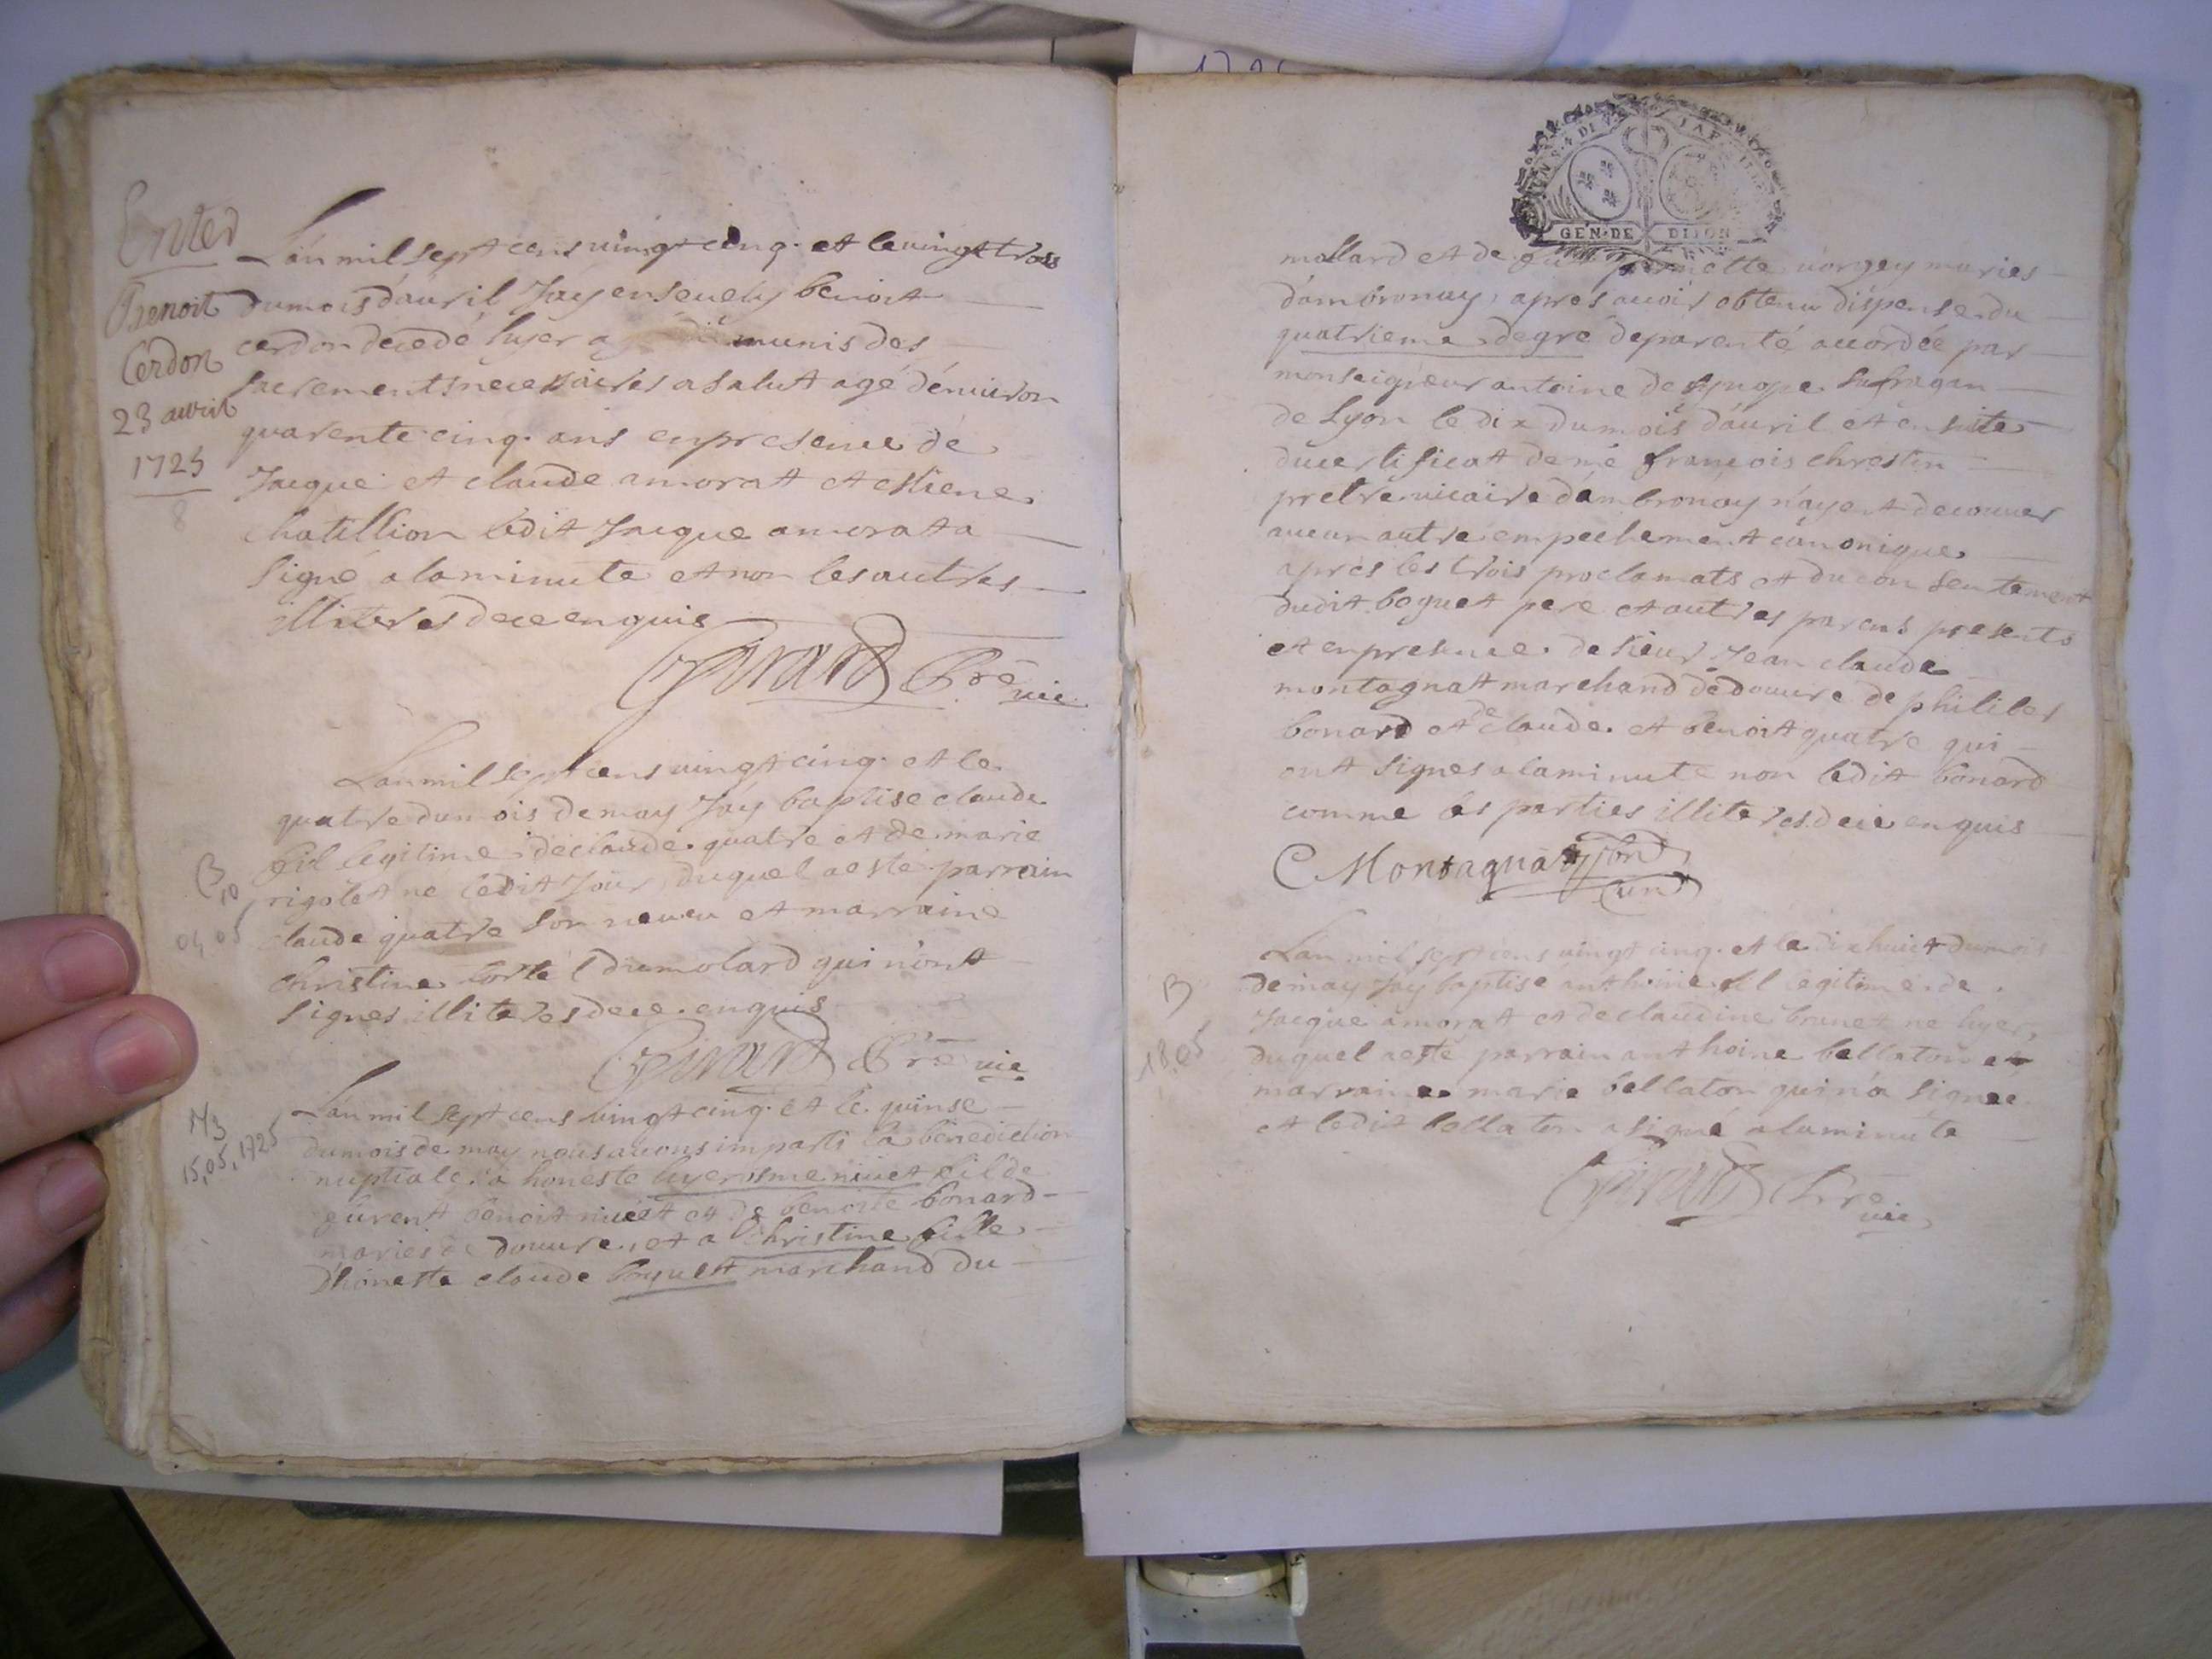 Enter
Benoit
Cerdon
23 avril
1725
8
L'an mil sept cens vingt cinq. et le vingt trois
du mois d'auril J'ay enseuely benoit
cerdon decedé hyer munis des
sacrements necessaires a salut agé d'enuiron
quarente cinq. ans en presence de
Jacque et claude amorat et estiene
chatillion ledit Jacque amorat a
signé a la minute et non les autres
illiteres de ce enquis
Girard Prê vic.
B
10
04,05
L'an mil sept cens vingt cinq. et le
quatre du mois de may J'ay baptise claude
fil legitime de claude quatre et de marie
rigolet ne ledit Jour, duquel a esté parrain
claude quatre son neueu et marraine
christine dumolard qui n'ont
signes illiteres de ce enquis
Girard Prê vic
M3
15,05,1725
L'an mil sept cens vingt cinq. et le quinse
du mois de may nous auons imparti la benediction
nuptiale a honeste hyerosme niuet fil de
benoit niuet et de benoite bonard
maries de douure, et a Christine fille
d'honeste claude boguet marchand du
GEN·DE DIJON
mollard et de uorgey maries
d'ambronay, apres auoir obtenu dispense du
quatrieme degré de parenté accordée par
monseigneur antoine de synope sufragan
de Lyon le dix du mois d'auril et en suite
du certificat de me françois chrestin
pretre vicaire d'ambronay n'ayent decouuer
aucun autre empechement canonique
apres les trois proclamats et du consentement
dudit boguet pere et autres parens presents
et en presence de sieur Jean claude
montagnat marchand de douure de philiber
bonard et de claude. et benoit quatre qui
ont signes a la minute non ledit bonard
comme les parties illiteres de ce enquis
C Montagnat
B
18,05
L'an mil sept cens vingt cinq. et le dix huict du mois
de may J'ay baptisé anthoine fil legitime de
Jacque amorat et de claudine brunet né hyer,
duquel a esté parrain anthoine bellaton et
marraine marie bellaton qui n'a signée
et ledit bellaton a signé a la minute
Girard Prê
vic